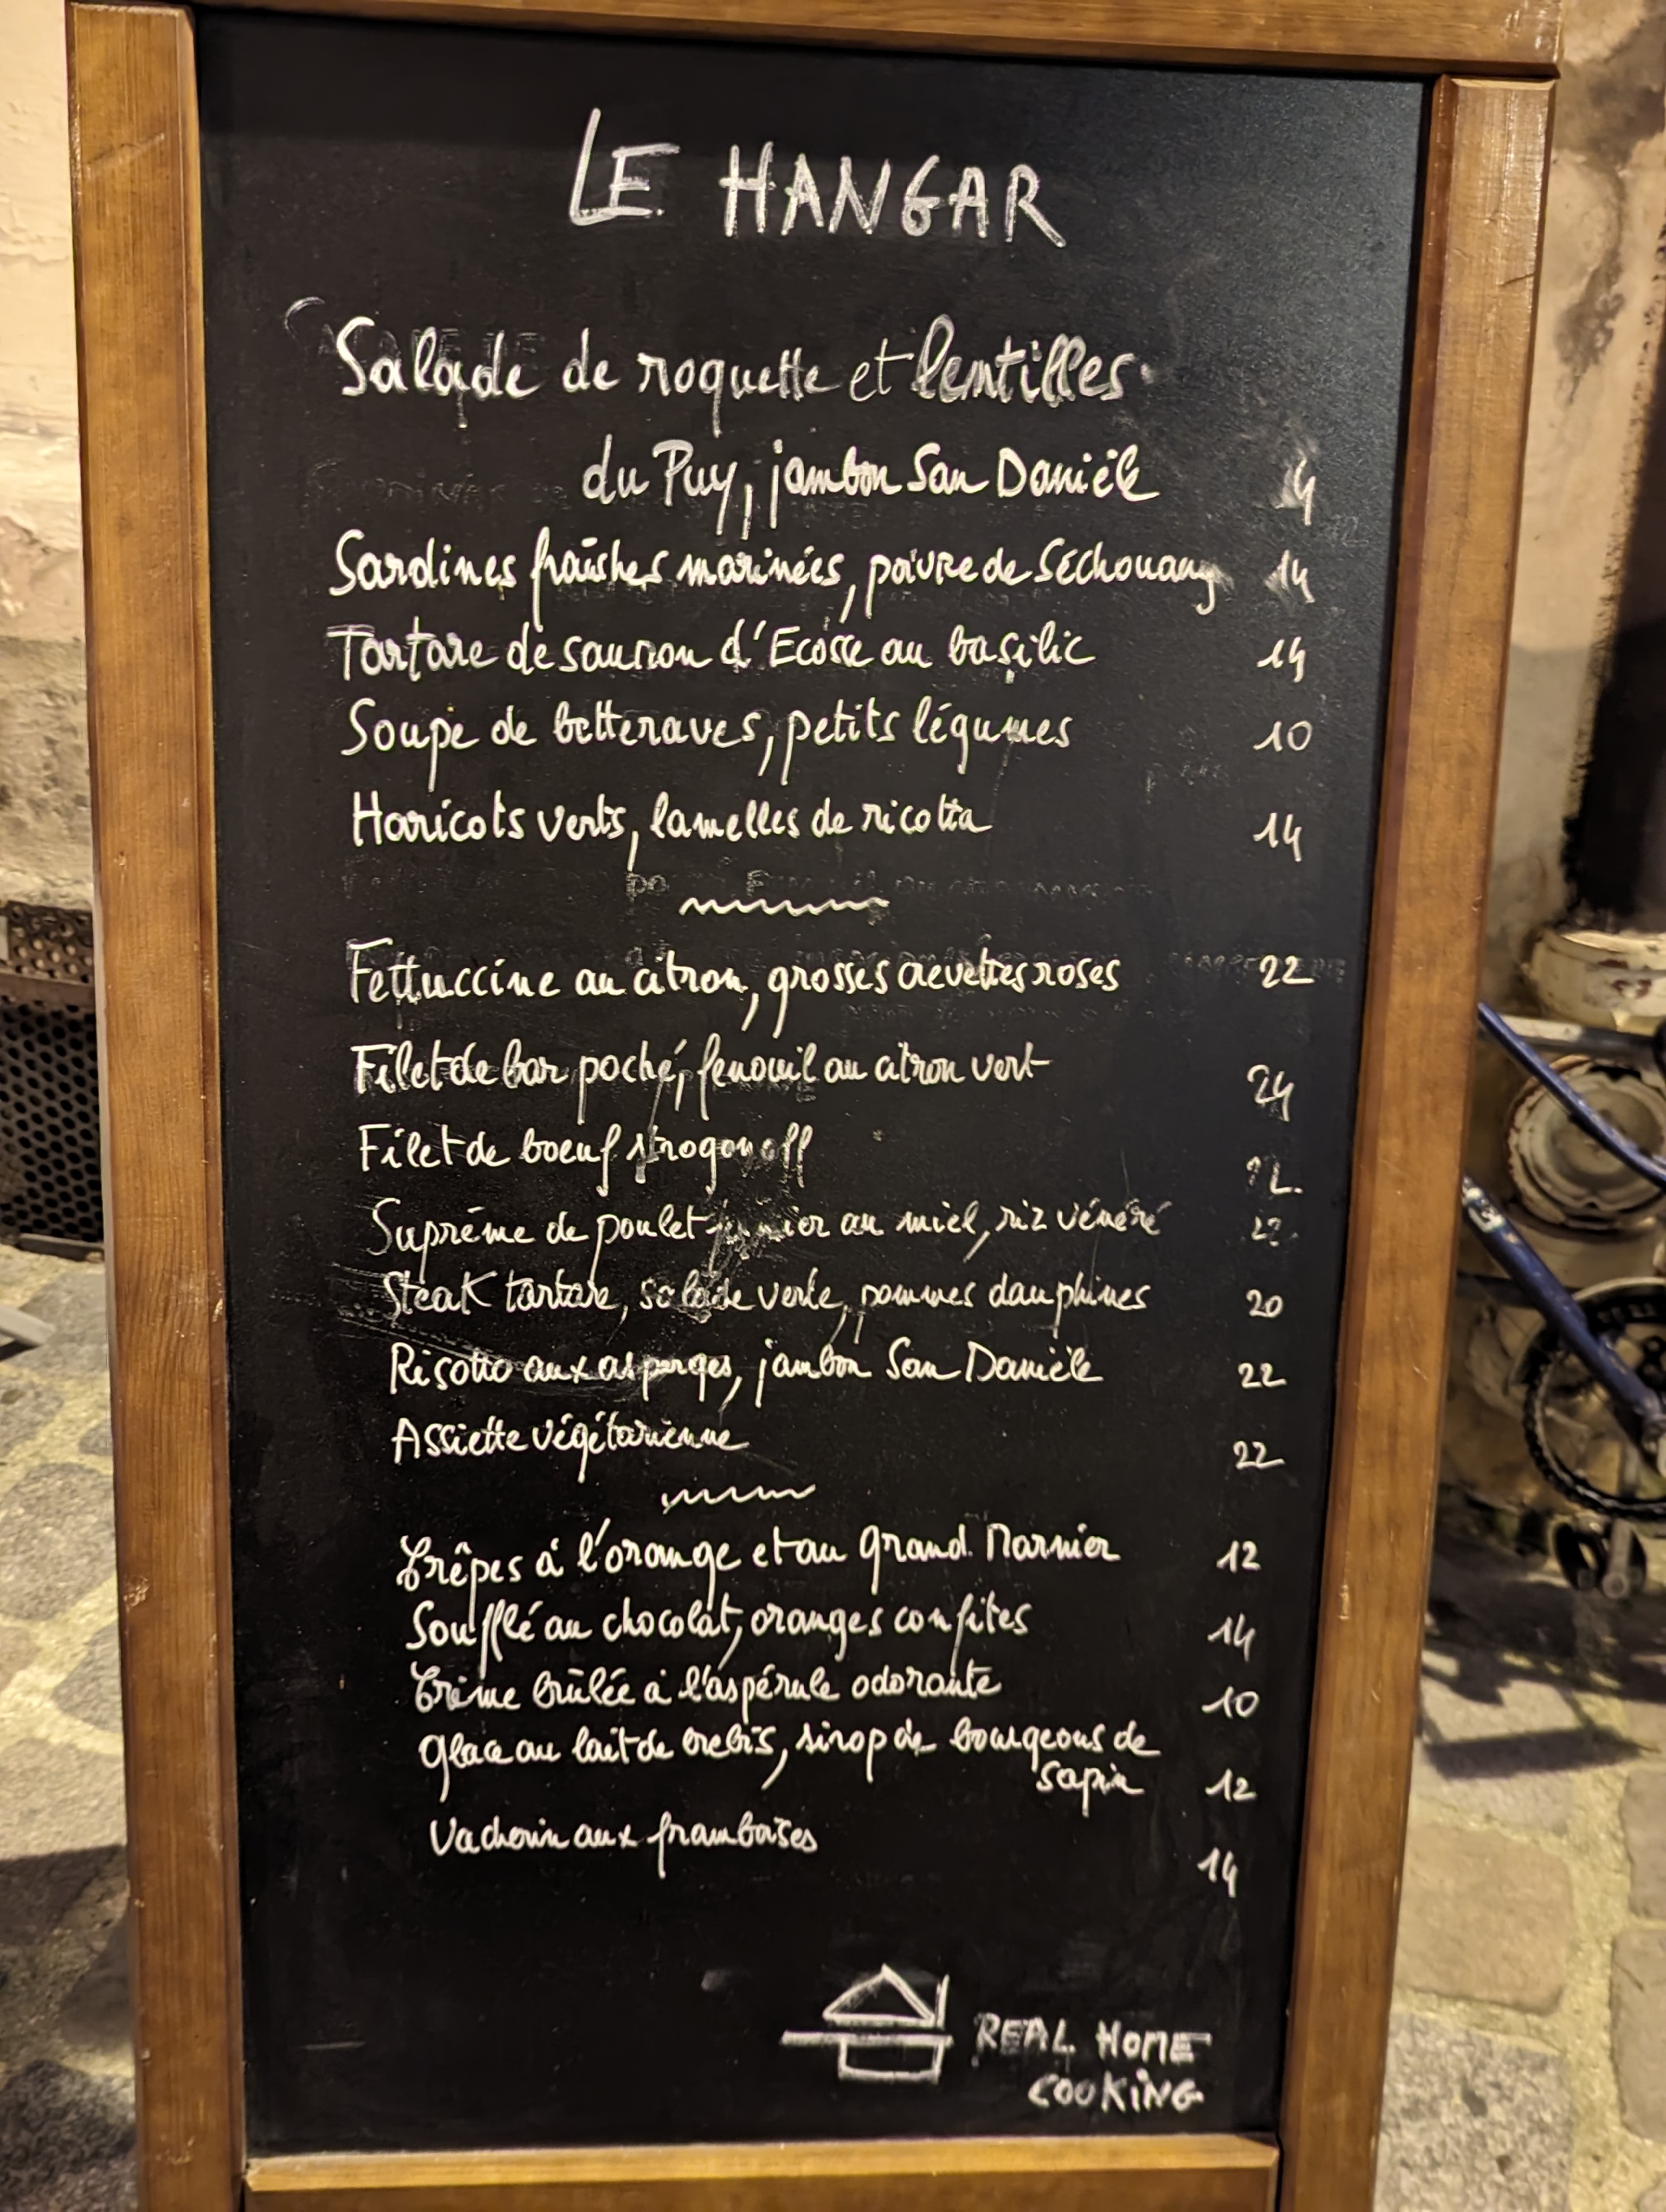 LE HANGAR
Salade de roquette et lentilles
du Puy, jambon San Danièle 14
Sardines fraîches marinées, poivre de Séchouang 14
Tartare de saumon d'Ecosse au basilic 14
Soupe de betteraves, petits légumes 10
Haricots verts, lamelles de ricotta 14
Fettuccine au citron, grosses crevettes roses 22
Filet de bar poché, fenouil au citron vert 24
Filet de boeuf strogonoff
Suprême de poulet au miel, riz vénéré
Steak tartare, salade verte, pommes dauphines 20
Risotto aux asperges, jambon San Danièle 22
Assiette végétarienne 22
Crêpes à l'orange et au Grand Marnier 12
Soufflé au chocolat, oranges confites 14
Crème brûlée à l'aspérule odorante 10
Glace au lait de brebis, sirop de bourgeons de
sapin 12
Vacherin aux framboises 14
REAL HOME
COOKING